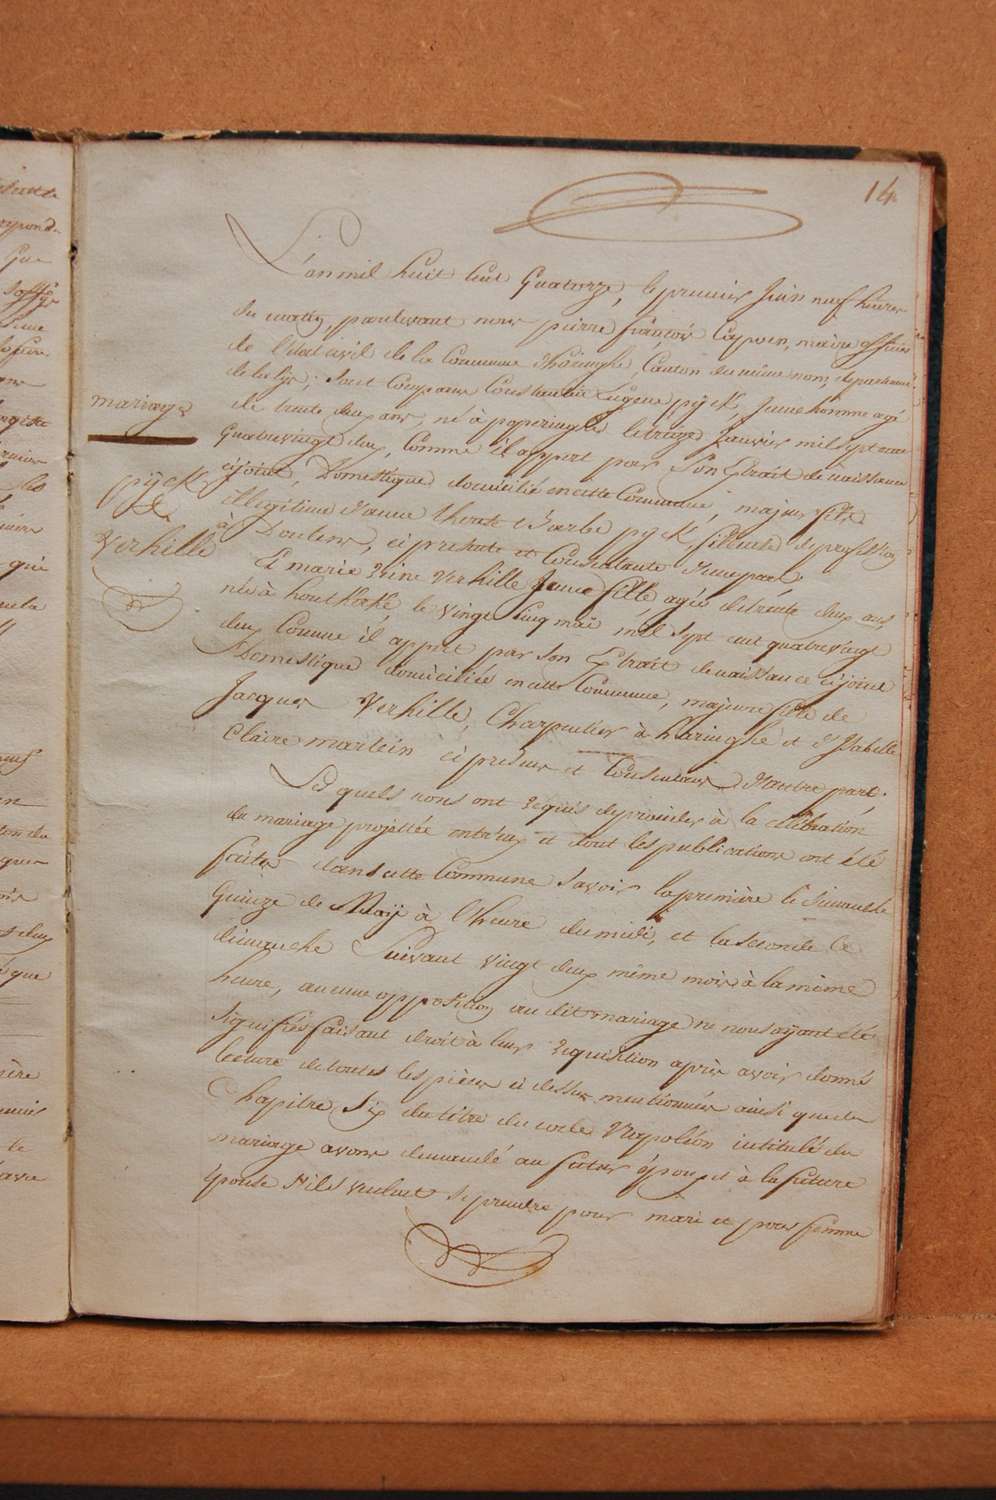 14
L'an mil huit cent Quatorze, le premier Juin neuf heures
du matin, pardevant nous pierre francois Capoen, maire officier
de l'état civil de la Commune d'haringhe, Canton du même nom, departement
de la lys, sont Comparu Constantin Eugene pyck, Jeune homme agé
mariage
de trente deux ans, né à poperinghe le treize Janvier mil sept cent
Quatrevingt deux, Comme il appert par Son Extrait de naissance
cijoint, Domestique domicilié en cette Commune, majeur fils
pyck
&
illegitime d'anne therese Barbe pyck, fileuse de profession
à
Verhille
, ci presente et Consentante d'une part.
Et marie Reine Verhille Jeune fille agée de trente deux ans,
née à houtkerke, le vingt Cinq mai mil sept cent quatrevingt
deux Comme il appert par son Extrait de naissance cijoint
Domestique domiciliée en cette Commune, majeure fille de
Jacques Verhille, Charpentier à haringhe et d'Isabelle
Claire martein ci presens et Consentans d'autre part.
Les quels nous ont requis de proceder à la célébration
du mariage projettée entr'eux et dont les publications ont été
faites dans cette Commune Savoir la première le Dimanche
Quinze de Maij à l'heure du midi, et la seconde le
dimanche Suivant vingt deux même mois à la même
heure, aucune opposition au dit mariage ne nous ayant été
signifiés faisant droit à leur requisition après avoir donné
lecture de toutes les pièces ci dessus mentionnées ainsi que du
Chapitre Six du titre du code Napoléon intitulé du
mariage avons demandé au futur époux et à la future
épouse s'ils veulent se prendre pour mari et pour femme